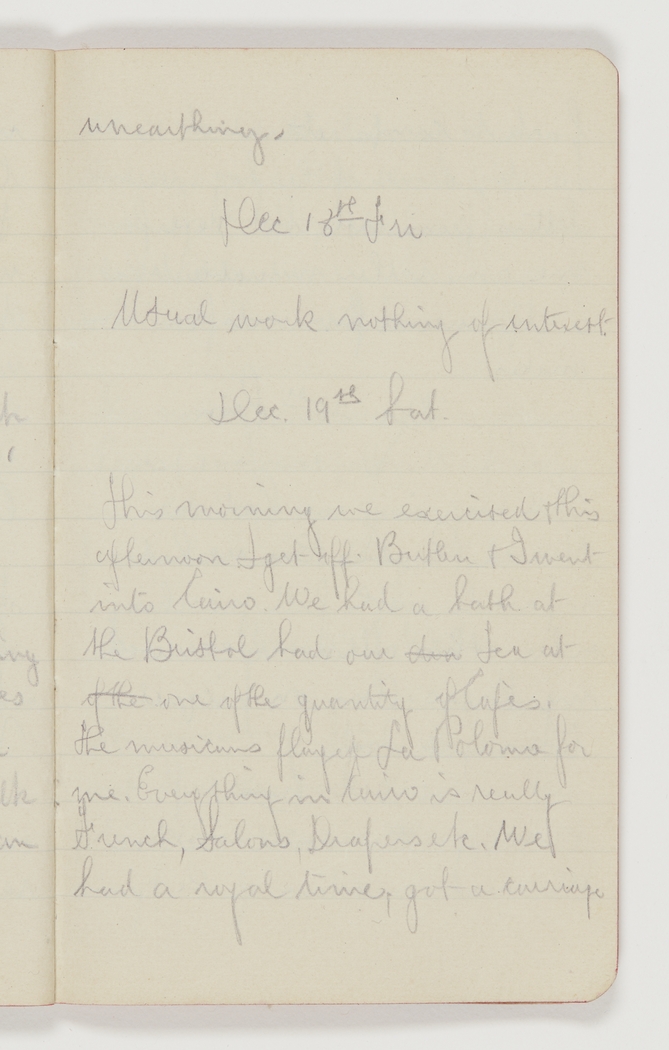 unearthing.
Dec 18th Fri
Usual work nothing of interest.
Dec. 19th Sat.
This morning we exercised & this
afternoon I get off. Butler & I went
into Cairo. We had a bath at
the Bristol had our Tea at
of the one of the quantity of Cafes.
The musicians played La Poloma for
me. Everything in Cairo is really
French, Salons, Drapers etc. We
had a royal time, got a carriage